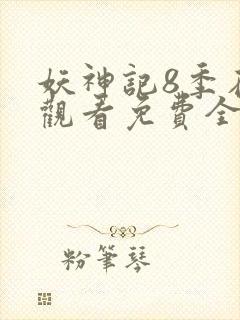 妖神記8季在
觀看免費全
粉筆琴